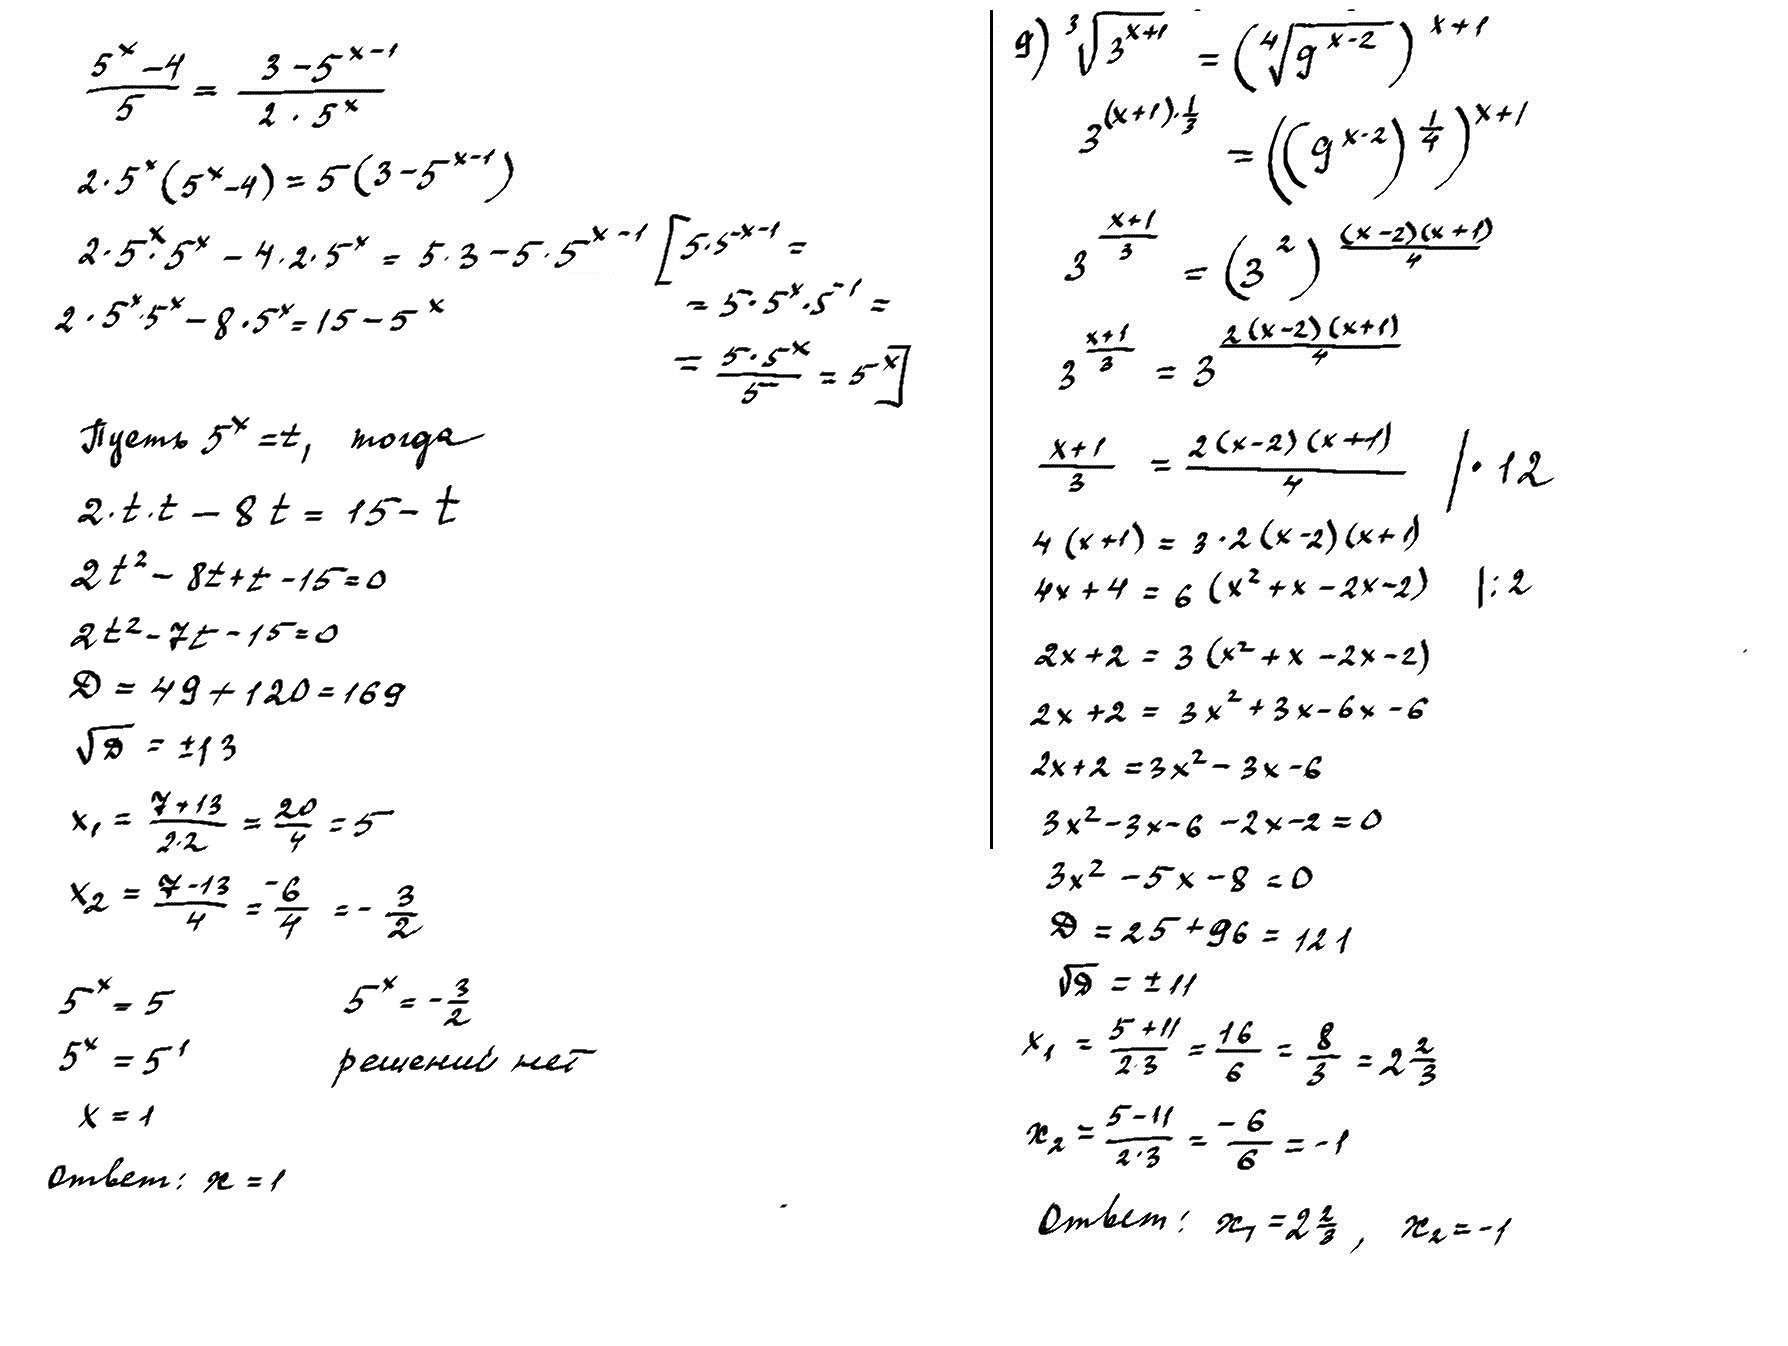 (5^x - 4)/5 = (3 - 5^(x-1))/(2 · 5^x)
2·5^x(5^x - 4) = 5(3 - 5^(x-1))
2·5^x·5^x - 4·2·5^x = 5·3 - 5·5^(x-1) [5·5^(-x-1) =
= 5·5^x·5^(-1) =
= (5·5^x)/5 = 5^x]
2·5^x·5^x - 8·5^x = 15 - 5^x
Пусть 5^x = t, тогда
2·t·t - 8t = 15 - t
2t² - 8t + t - 15 = 0
2t² - 7t - 15 = 0
D = 49 + 120 = 169
√D = ±13
x₁ = (7+13)/(2·2) = 20/4 = 5
x₂ = (7-13)/4 = -6/4 = -3/2
5^x = 5 5^x = -3/2
5^x = 5^1 решений нет
x = 1
Ответ: x = 1
9) ³√(3^(x+1)) = (⁴√(9^(x-2)))^(x+1)
3^((x+1)·1/3) = ((9^(x-2))^(1/4))^(x+1)
3^((x+1)/3) = (3²)^((x-2)(x+1)/4)
3^((x+1)/3) = 3^(2(x-2)(x+1)/4)
(x+1)/3 = 2(x-2)(x+1)/4 | · 12
4(x+1) = 3·2(x-2)(x+1)
4x + 4 = 6(x² + x - 2x - 2) | : 2
2x + 2 = 3(x² + x - 2x - 2)
2x + 2 = 3x² + 3x - 6x - 6
2x + 2 = 3x² - 3x - 6
3x² - 3x - 6 - 2x - 2 = 0
3x² - 5x - 8 = 0
D = 25 + 96 = 121
√D = ±11
x₁ = (5+11)/(2·3) = 16/6 = 8/3 = 2 2/3
x₂ = (5-11)/(2·3) = -6/6 = -1
Ответ: x₁ = 2 2/3, x₂ = -1